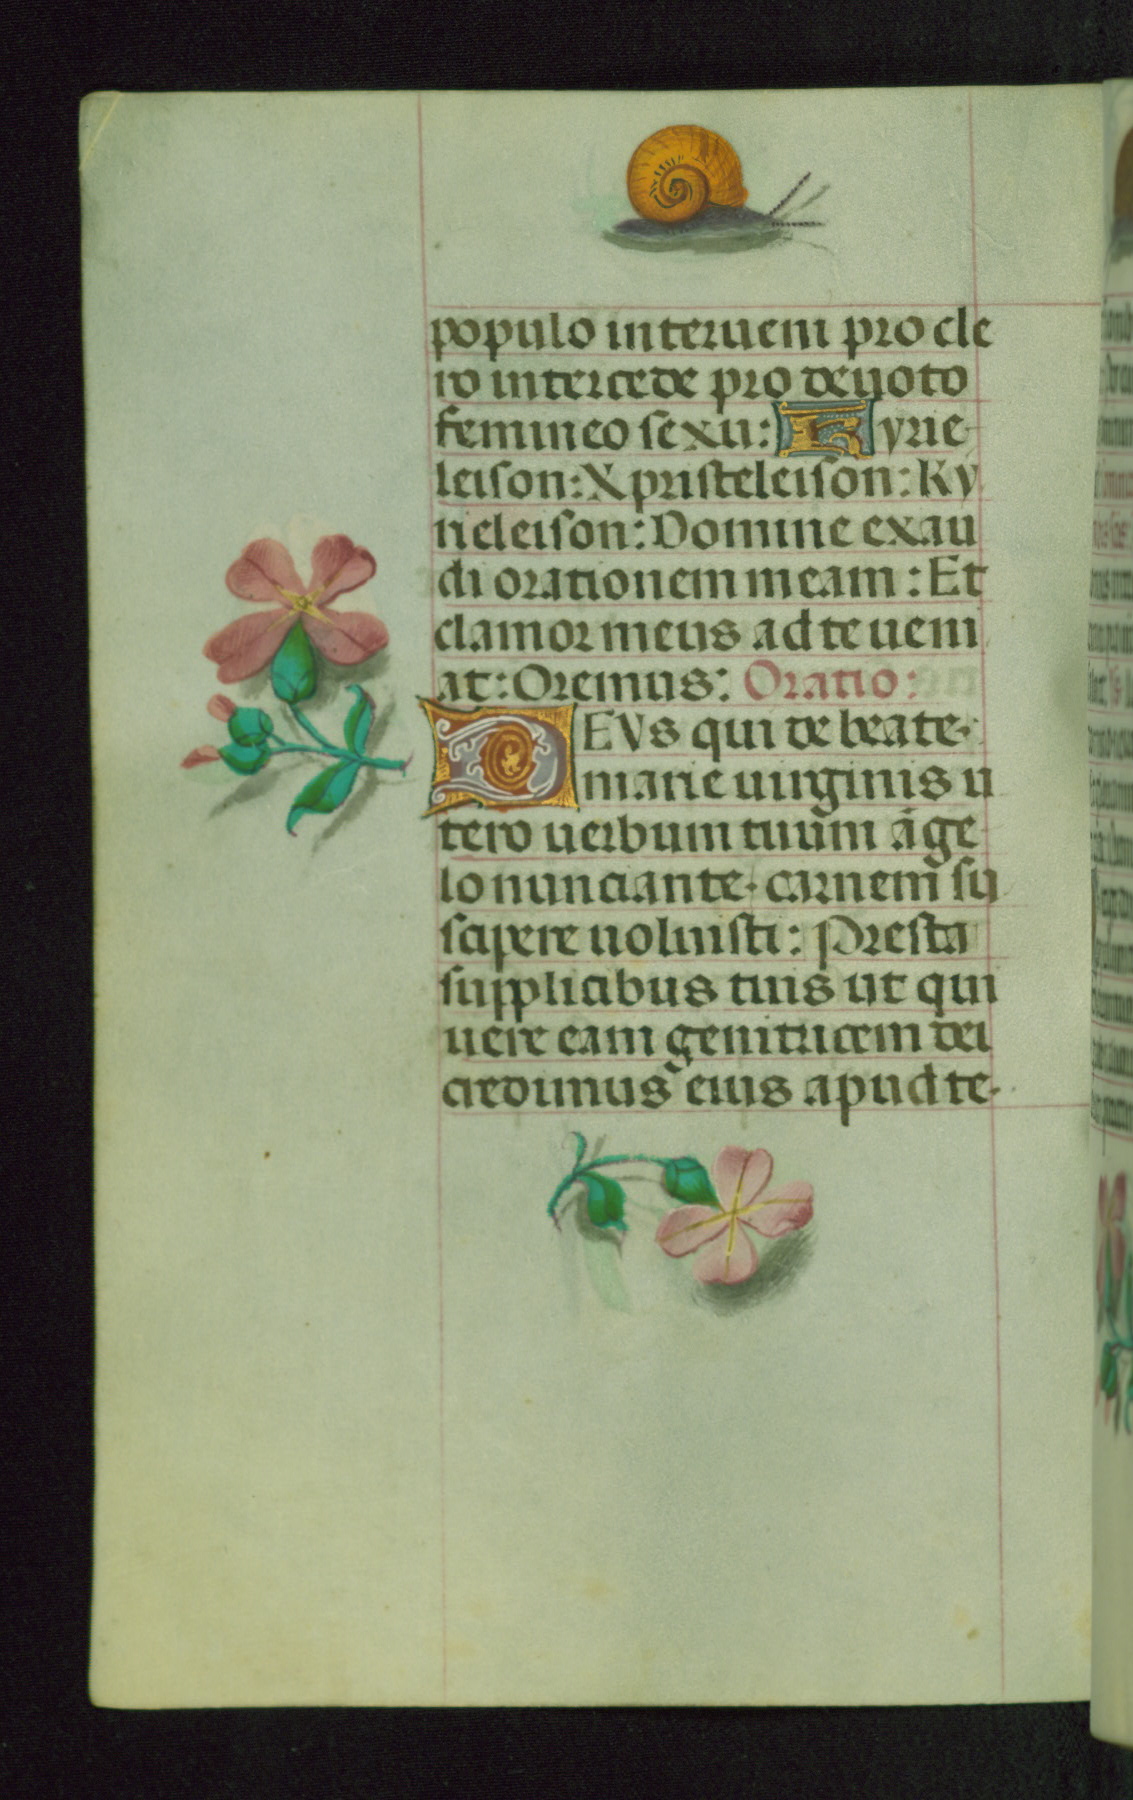 populo interueni pro cle
ro intercede pro deuoto
femineo sexu: Kyrie
leison: Xpristeleison: Ky
rieleison: Domine exau
di orationem meam: Et
clamor meus ad te ueni
at: Oremus: Oratio:
DEVS qui de beate
marie uirginis u
tero uerbum tuum āge
lo nunciante. carnem su
scipere uoluisti: Presta
supplicibus tuis ut qui
uere eam genitricem dei
credimus eius apud te